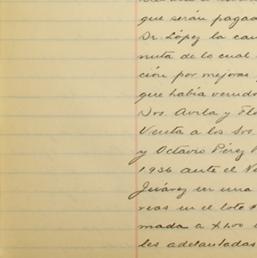 que serán pagad
Dr. López la can
nuta de lo cual
ción por mejoras
que había vendid
Dres. Avila y Flo
Venta a los Srs
y Octavio Pérez
1936 ante el No
Juárez en una
rias en el lote
mada a
les adelantadas